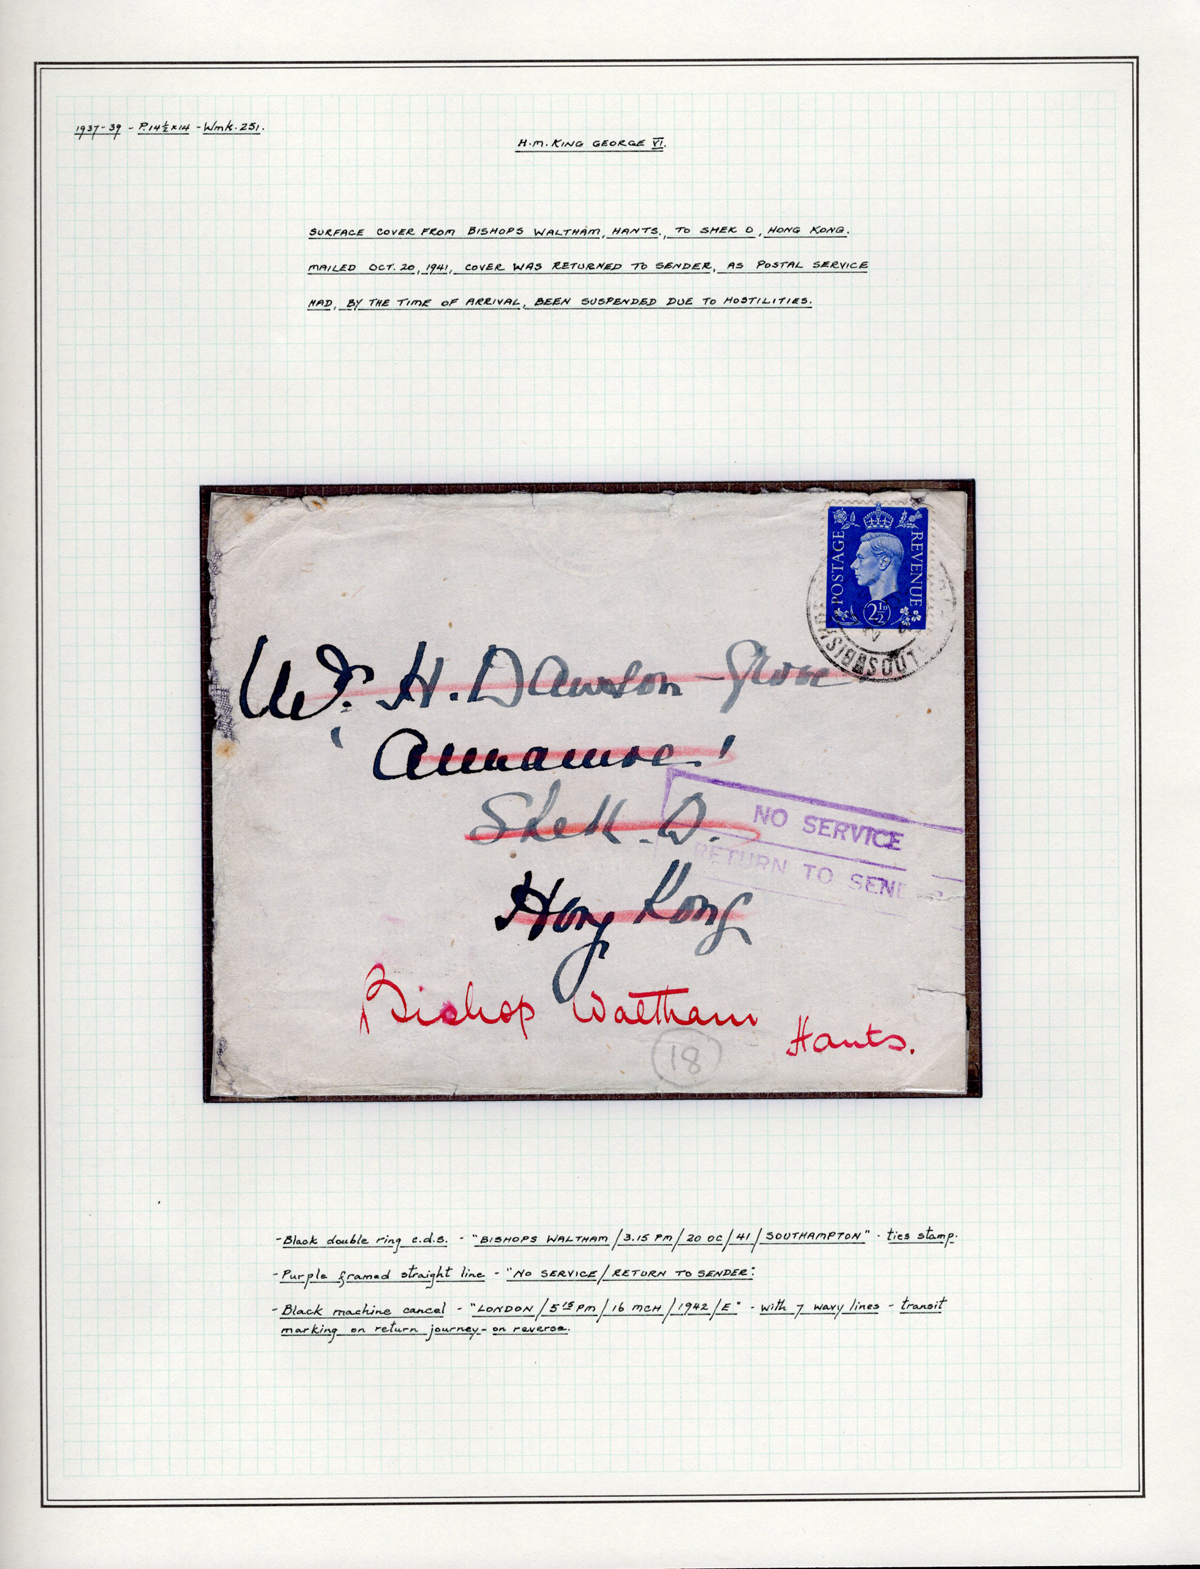 1937-39 - P.14½x14 - Wmk. 251.
H.M. KING GEORGE VI.
SURFACE COVER FROM BISHOPS WALTHAM, HANTS., TO SHEK O, HONG KONG.
MAILED OCT. 20, 1941, COVER WAS RETURNED TO SENDER, AS POSTAL SERVICE
HAD, BY THE TIME OF ARRIVAL, BEEN SUSPENDED DUE TO HOSTILITIES.
POSTAGE REVENUE
2½D
H. Dawson-Grove
Shek. O.
NO SERVICE
RETURN TO SEND
Hong Kong
Bishop Waltham
Hants.
18
-Black double ring c.d.s. - "BISHOPS WALTHAM/3.15 PM/20 OC/41/SOUTHAMPTON" - ties stamp.
-Purple framed straight line - "NO SERVICE/RETURN TO SENDER".
-Black machine cancel - "LONDON/5 15 PM/16 MCH/1942/E" - with 7 wavy lines - transit
marking on return journey - on reverse.